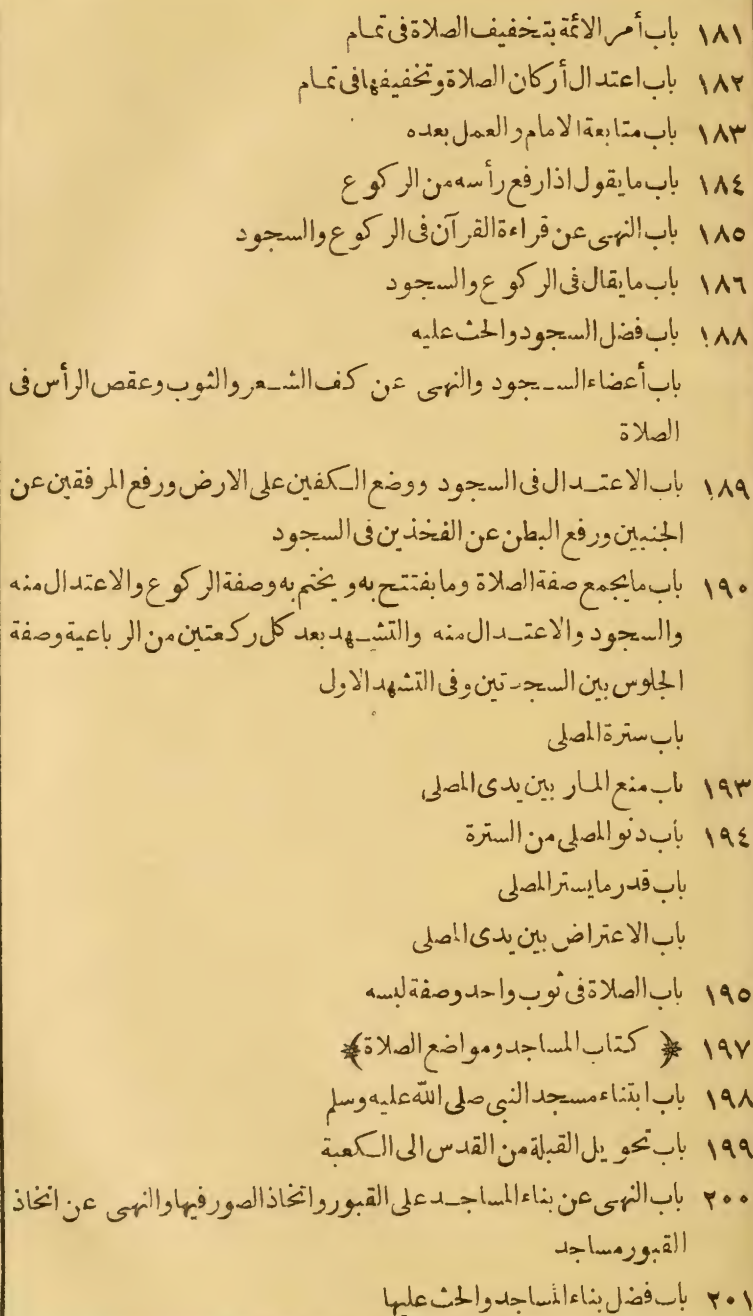 ١٨١ باب أمر الائمة بتخفيف الصلاة فى تمام
١٨٢ باب اعتدال أركان الصلاة وتخفيفها فى تمام
١٨٣ باب متابعة الامام والعمل بعده
١٨٤ باب مايقول اذا رفع رأسه من الركوع
١٨٥ باب النهى عن قراءة القرآن فى الركوع والسجود
١٨٦ باب مايقال فى الركوع والسجود
١٨٨ باب فضل السجود والحث عليه
باب أعضاء السجود والنهى عن كف الشعر والثوب وعقص الرأس فى
الصلاة
١٨٩ باب الاعتدال فى السجود ووضع الكفين على الارض ورفع المرفقين عن
الجنبين ورفع البطن عن الفخذين فى السجود
١٩٠ باب مايجمع صفة الصلاة ومايفتتح به ويختم به وصفة الركوع والاعتدال منه
والسجود والاعتدال منه والتشهد بعد كل ركعتين من الرباعية وصفة
الجلوس بين السجدتين وفى التشهد الاول
باب سترة المصلى
١٩٣ باب منع المار بين يدى المصلى
١٩٤ باب دنو المصلى من السترة
باب قدر مايستر المصلى
باب الاعتراض بين يدى المصلى
١٩٥ باب الصلاة فى ثوب واحد وصفة لبسه
١٩٧ ﴿ كتاب المساجد ومواضع الصلاة ﴾
١٩٨ باب ابتناء مسجد النبى صلى الله عليه وسلم
١٩٩ باب تحويل القبلة من القدس الى الكعبة
٢٠٠ باب النهى عن بناء المساجد على القبور واتخاذ الصور فيها والنهى عن اتخاذ
القبور مساجد
٢٠١ باب فضل بناء المساجد والحث عليها